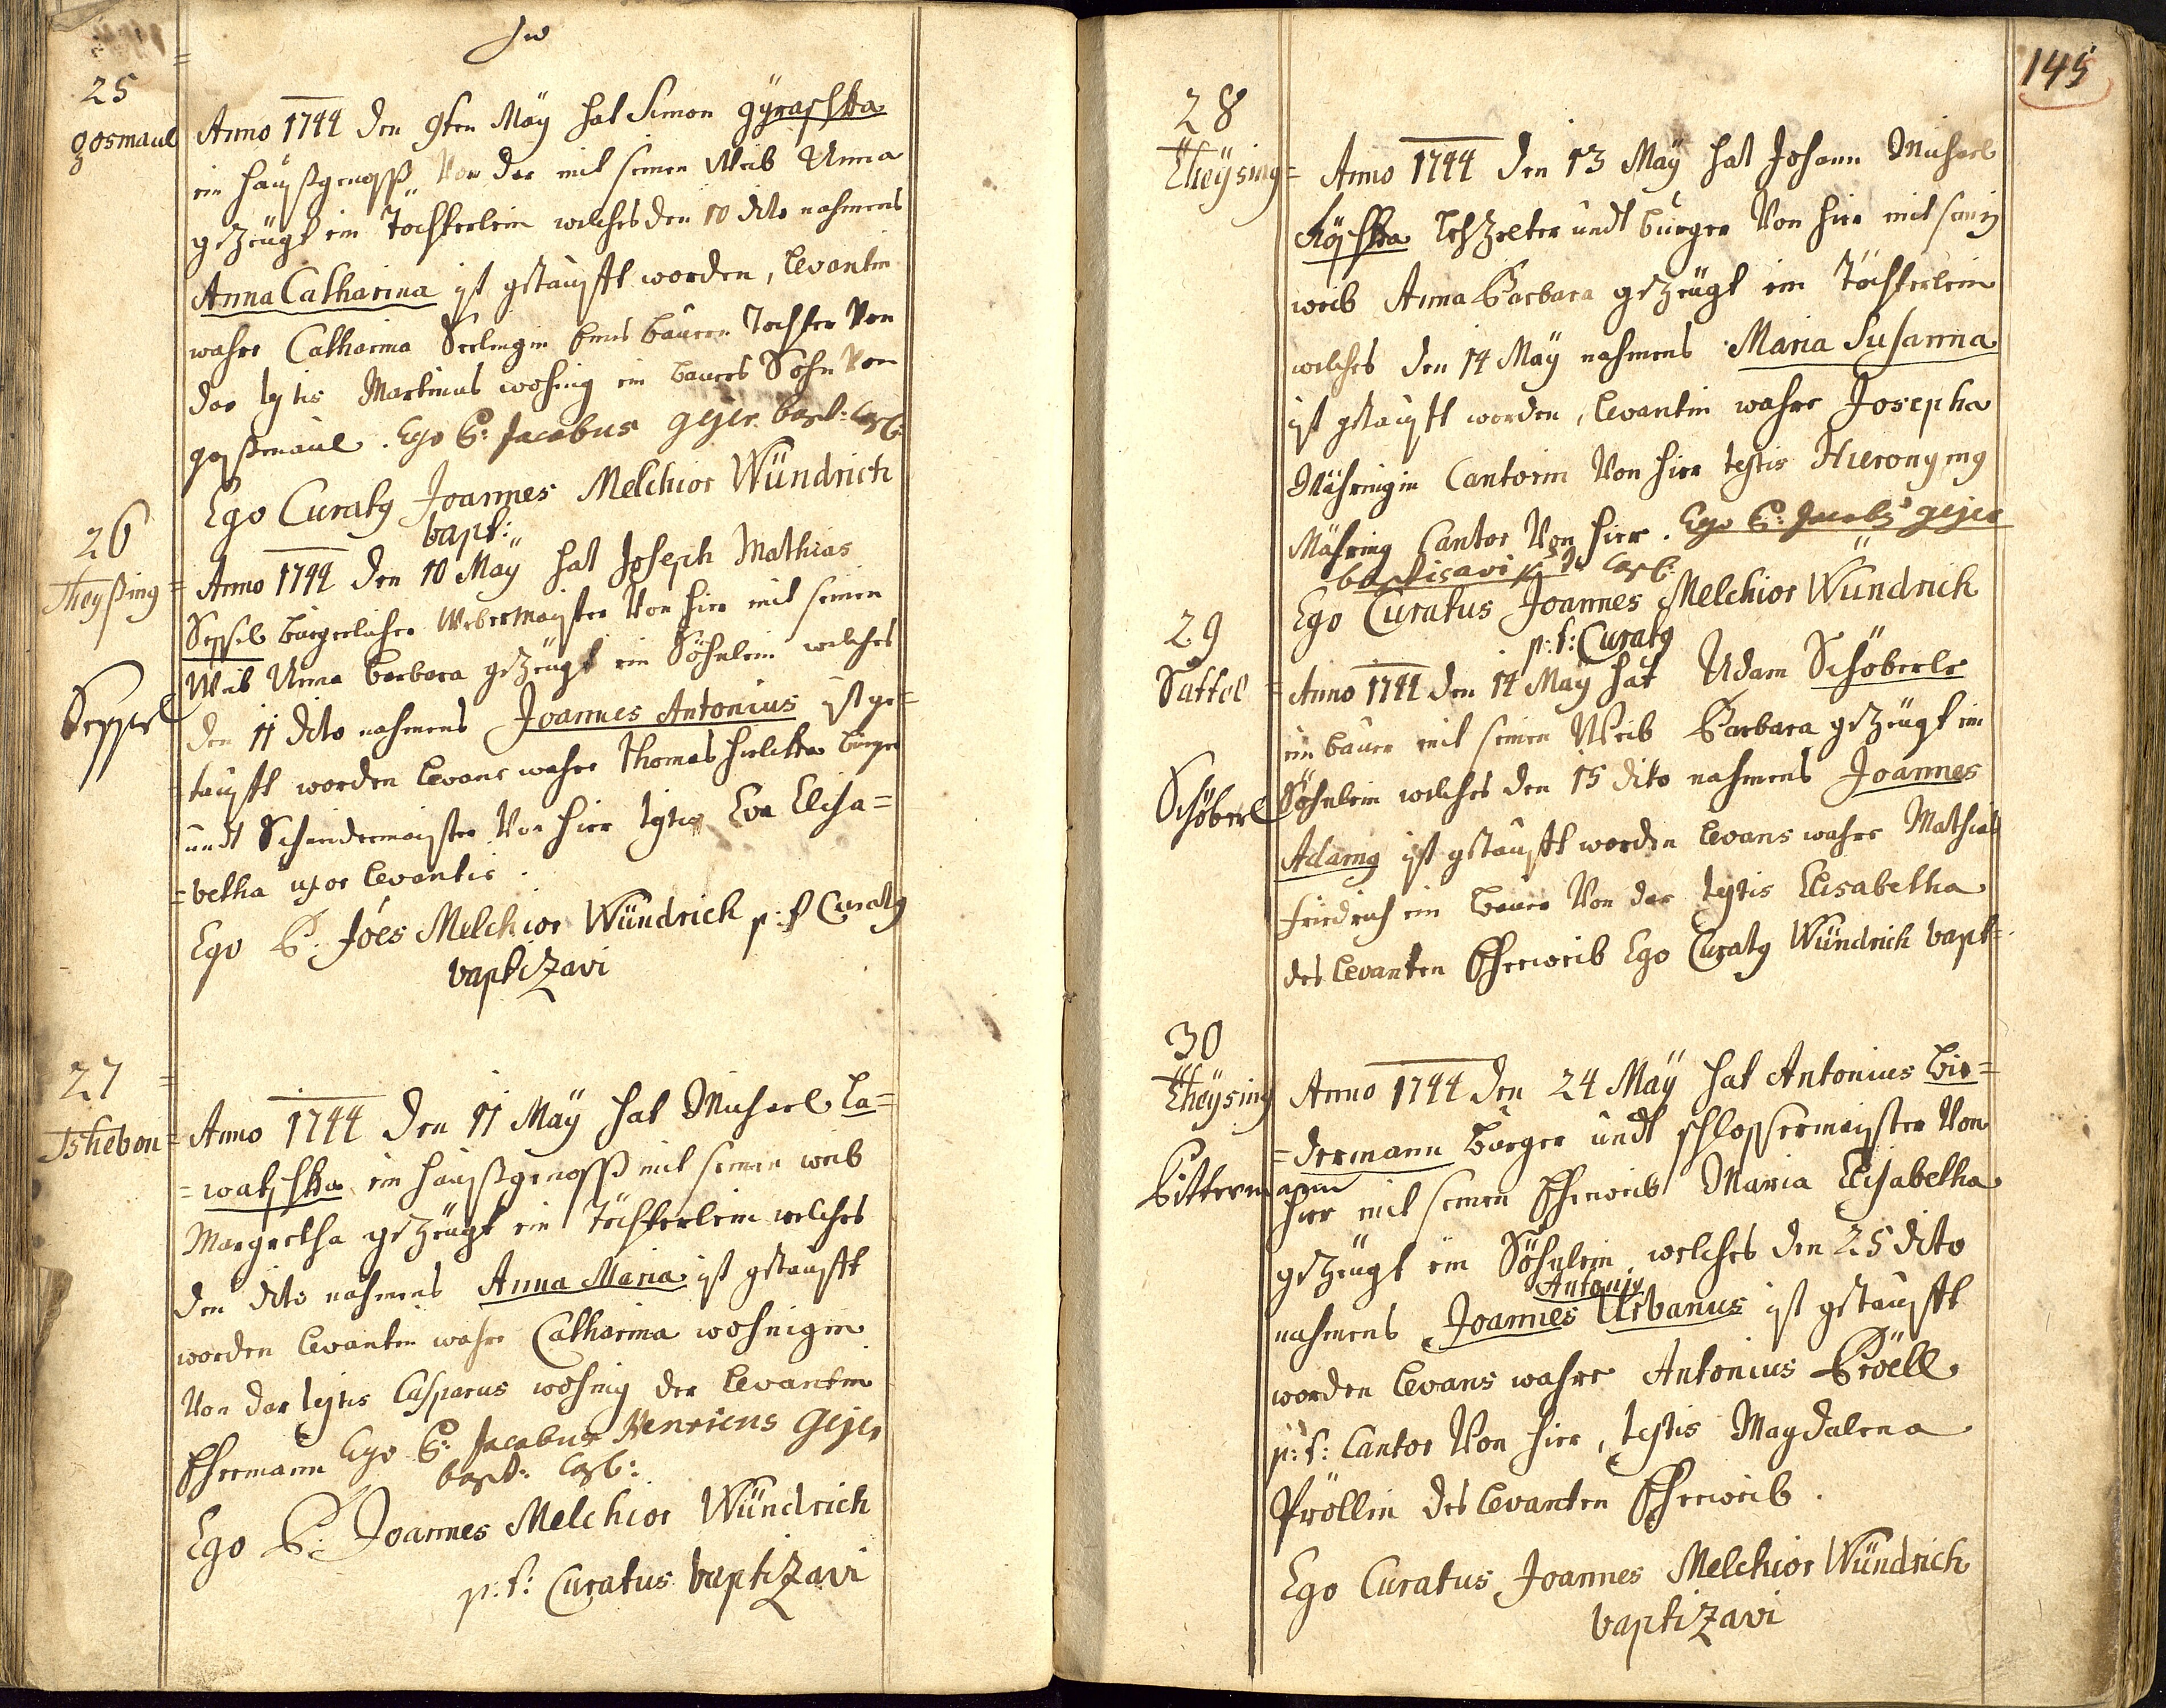 25
gosmaul
Anno 1744 den 9ten Maÿ hat Simon gÿraschka
ein haußgenoß Von dar mit seinen Weib Anna
gezeügt ein Tochterlein welches den 10 dito nahmens
Anna Catharina ist getaufft worden, Levantin
wahre Catharina Seelingin eines bauern Tochter Von
dar testis Martinus wohnig ein bauers Sohn Von
goßmaul. Ego P: Jacobus gejer bapt:
Ego Curatus Joannes Melchior Wündrich
bapt:
26
Theÿßing
Anno 1744 den 10 Maÿ hat Joseph Mathias
Seppel bürgerlicher Webermaister Von hier mit seinen
Weib Anna barbara gezeügt ein Söhnlein welches
Seppel
den 11 dito nahmens Joannes Antonius ist ge=
=taufft worden Levans wahre Thomas burger
undt Schneidermaister Von hier testis Eva Elisa=
=betha uxor Levantis.
Ego P. Joes Melchior Wündrich p: t Curatus
baptizavi
27
Tschebon
Anno 1744 den 11 Maÿ hat Michael La=
=watschka ein haußgenoß mit seinen weib
Margretha gezeügt ein Töchterlein welches
den dito nahmens Anna Maria ist getaufft
worden Levantin wahre Catharina wohnigin
Von dar testis Casparus wohnig der Levantin
Ehemann Ego P: Jacobus Henricus Gejer
bapt:
Ego P: Joannes Melchior Wündrich
p: t: Curatus baptizavi
145
28
Theÿsing=
Anno 1744 den 13 Maÿ hat Johann Michael
Löschka Lehzelter undt burger Von hier mit sein
weib Anna Barbara gezeügt ein Töchterlein
welches den 14 Maÿ nahmens Maria Susanna
ist getaufft worden, Levantin wahre Josepha
Mähringin Cantorin Von hier testis Hieronymus
Mähring Cantor Von hier. Ego P: Jacobus gejer
baptisavi
Ego Curatus Joannes Melchior Wündrich
p: t: Curatus
29
Sattel
Anno 1744 den 14 Maÿ hat Adam Schöberle
ein bauer mit seinen Weib Barbara gezeügt ein
Schöberl
Söhnlein welches den 15 dito nahmens Joannes
Adamus ist getaufft worden Levans wahre Mathias
friedrich ein bauer Von dar testis Elisabetha
des Levanten Eheweib Ego Curatus Wündrich bapt=
30
Theÿsing
Anno 1744 den 24 Maÿ hat Antonius Bie=
=dermann burger undt schlossermaister Von
Bittermann
hier mit seinen Eheweib Maria Elisabetha
gezeügt ein Söhnlein welches den 25 dito
Antonius
nahmens Joannes Urbanus ist getaufft
worden Levans wahre Antonius Pröll
p: t: Cantor Von hier, testis Magdalena
Pröllin des Levanten Eheweib.
Ego Curatus Joannes Melchior Wündrich
baptizavi